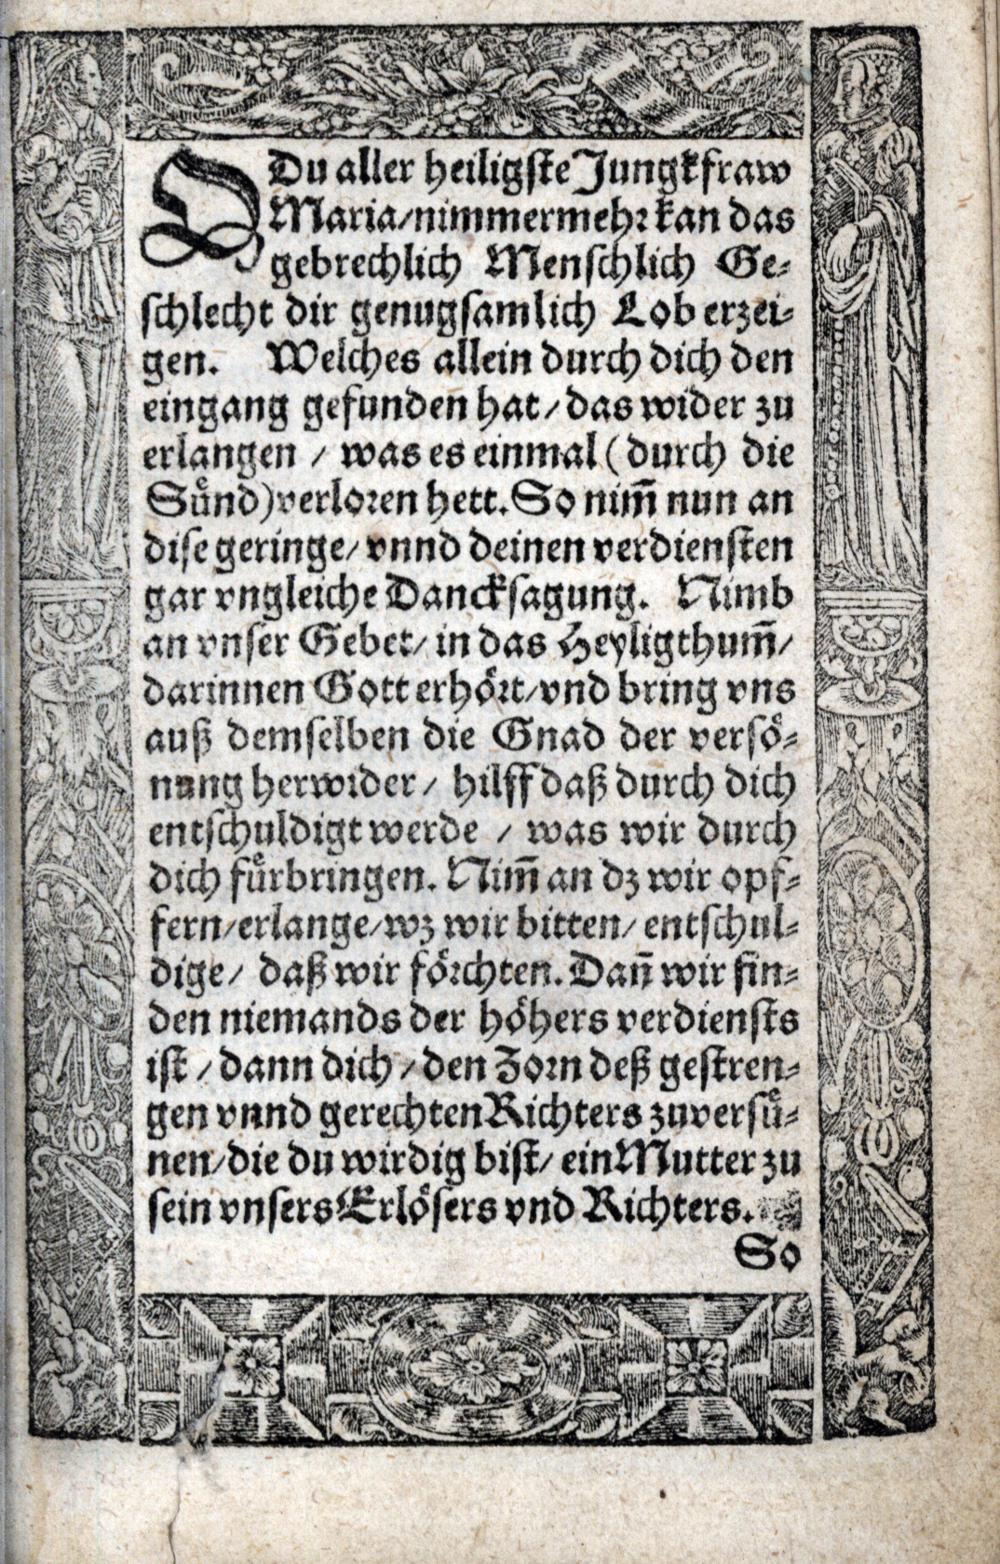 O Du aller heiligste Jungkfraw
Maria/nimmermehr kan das
gebrechlich Menschlich Ge⸗
schlecht dir genugsamlich Lob erzei⸗
gen. Welches allein durch dich den
eingang gefunden hat/das wider zu
erlangen / was es einmal (durch die
Suͤnd) verloren hett. So nim̄ nun an
dise geringe/ vnnd deinen verdiensten
gar vngleiche Dancksagung. Nimb
an vnser Gebet/ in das Heyligthum̄/
darinnen Gott erhoͤrt/vnd bring vns
auß demselben die Gnad der versoͤ⸗
nung herwider / hilff daß durch dich
entschuldigt werde / was wir durch
dich fuͤrbringen. Nim̄ an dz wir opf⸗
fern/erlange/wz wir bitten/ entschul⸗
dige/ daß wir foͤrchten. Dan̄ wir fin⸗
den niemands der hoͤhers verdiensts
ist / dann dich / den Zorn deß gestren⸗
gen vnnd gerechten Richters zuversuͤ⸗
nen/die du wirdig bist/ ein Mutter zu
sein vnsers Erloͤsers vnd Richters.
So